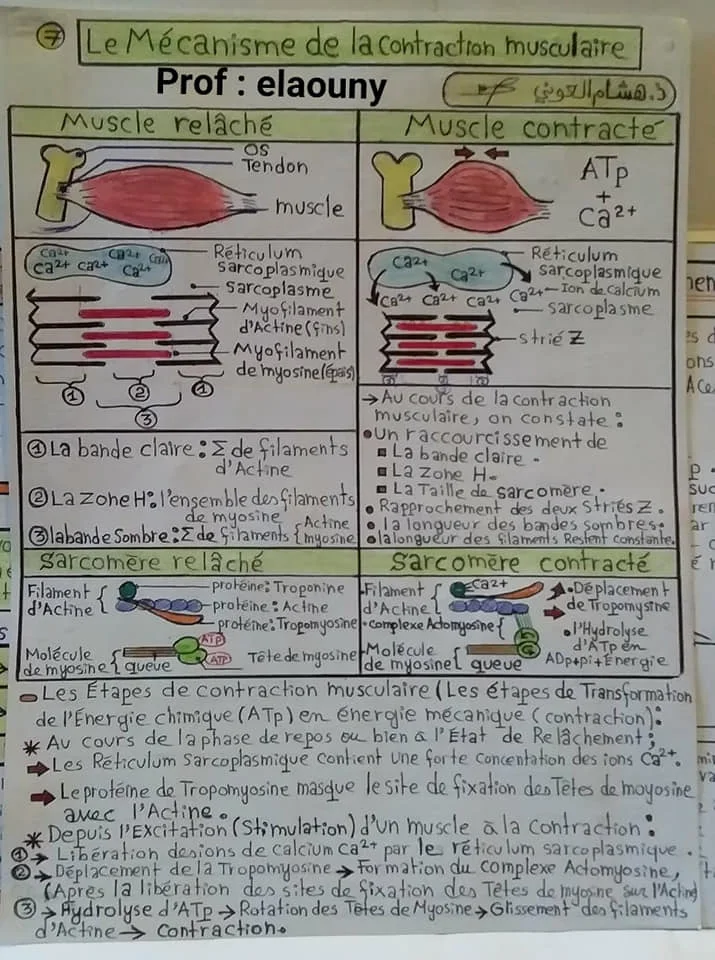 7
Le Mécanisme de la contraction musculaire
Prof : elaouny
ذ. هشام العوني
Muscle relâché
OS
Tendon
muscle
Ca2+ Ca2+ Ca2+
Ca2+ Ca2+ Ca2+
Réticulum
sarcoplasmique
sarcoplasme
Myofilament
d'Actine (fins)
Myofilament
de myosine (épais)
1 2 1
3
① La bande claire : Σ de filaments
d'Actine
② La zone H : l'ensemble des filaments
de myosine
③ la bande Sombre : Σ de filaments { Actine
myosine
Muscle contracté
ATp
+
Ca2+
Ca2+ Ca2+
Ca2+ Ca2+ Ca2+ Ca2+
Réticulum
sarcoplasmique
Ion de calcium
sarcoplasme
strié Z
→ Au cours de la contraction
musculaire, on constate :
• Un raccourcissement de
▪ La bande claire.
▪ La zone H.
▪ La Taille de sarcomère.
• Rapprochement des deux Striés Z.
• la longueur des bandes sombres;
• la longueur des filaments Restent constante.
Sarcomère relâché
Filament
d'Actine {
protéine: Troponine
protéine: Actine
protéine: Tropomyosine
ATP
ATP
Molécule
de myosine {
queue
Tête de myosine
Sarcomère contracté
Filament
d'Actine {
Ca2+
• complexe Actomyosine {
Molécule
de myosine {
queue
• Déplacement
de Tropomysine
• l'Hydrolyse
d'ATp en
ADp+pi+Energie
Les Étapes de contraction musculaire (Les étapes de Transformation
de l'Énergie chimique (ATp) en énergie mécanique (contraction):
* Au cours de la phase de repos ou bien à l'État de Relâchement;
→ Les Réticulum Sarcoplasmique contient une forte concentation des ions Ca2+.
→ Le protéine de Tropomyosine masque le site de fixation des Têtes de moyosine
avec l'Actine.
* Depuis l'Excitation (Stimulation) d'un muscle à la contraction :
① → Libération des ions de calcium Ca2+ par le réticulum sarcoplasmique.
② → Déplacement de la Tropomyosine → Formation du complexe Actomyosine,
(Après la libération des sites de fixation des Têtes de myosine sur l'Actine)
③ → Hydrolyse d'ATp → Rotation des Têtes de Myosine → Glissement des filaments
d'Actine → Contraction.